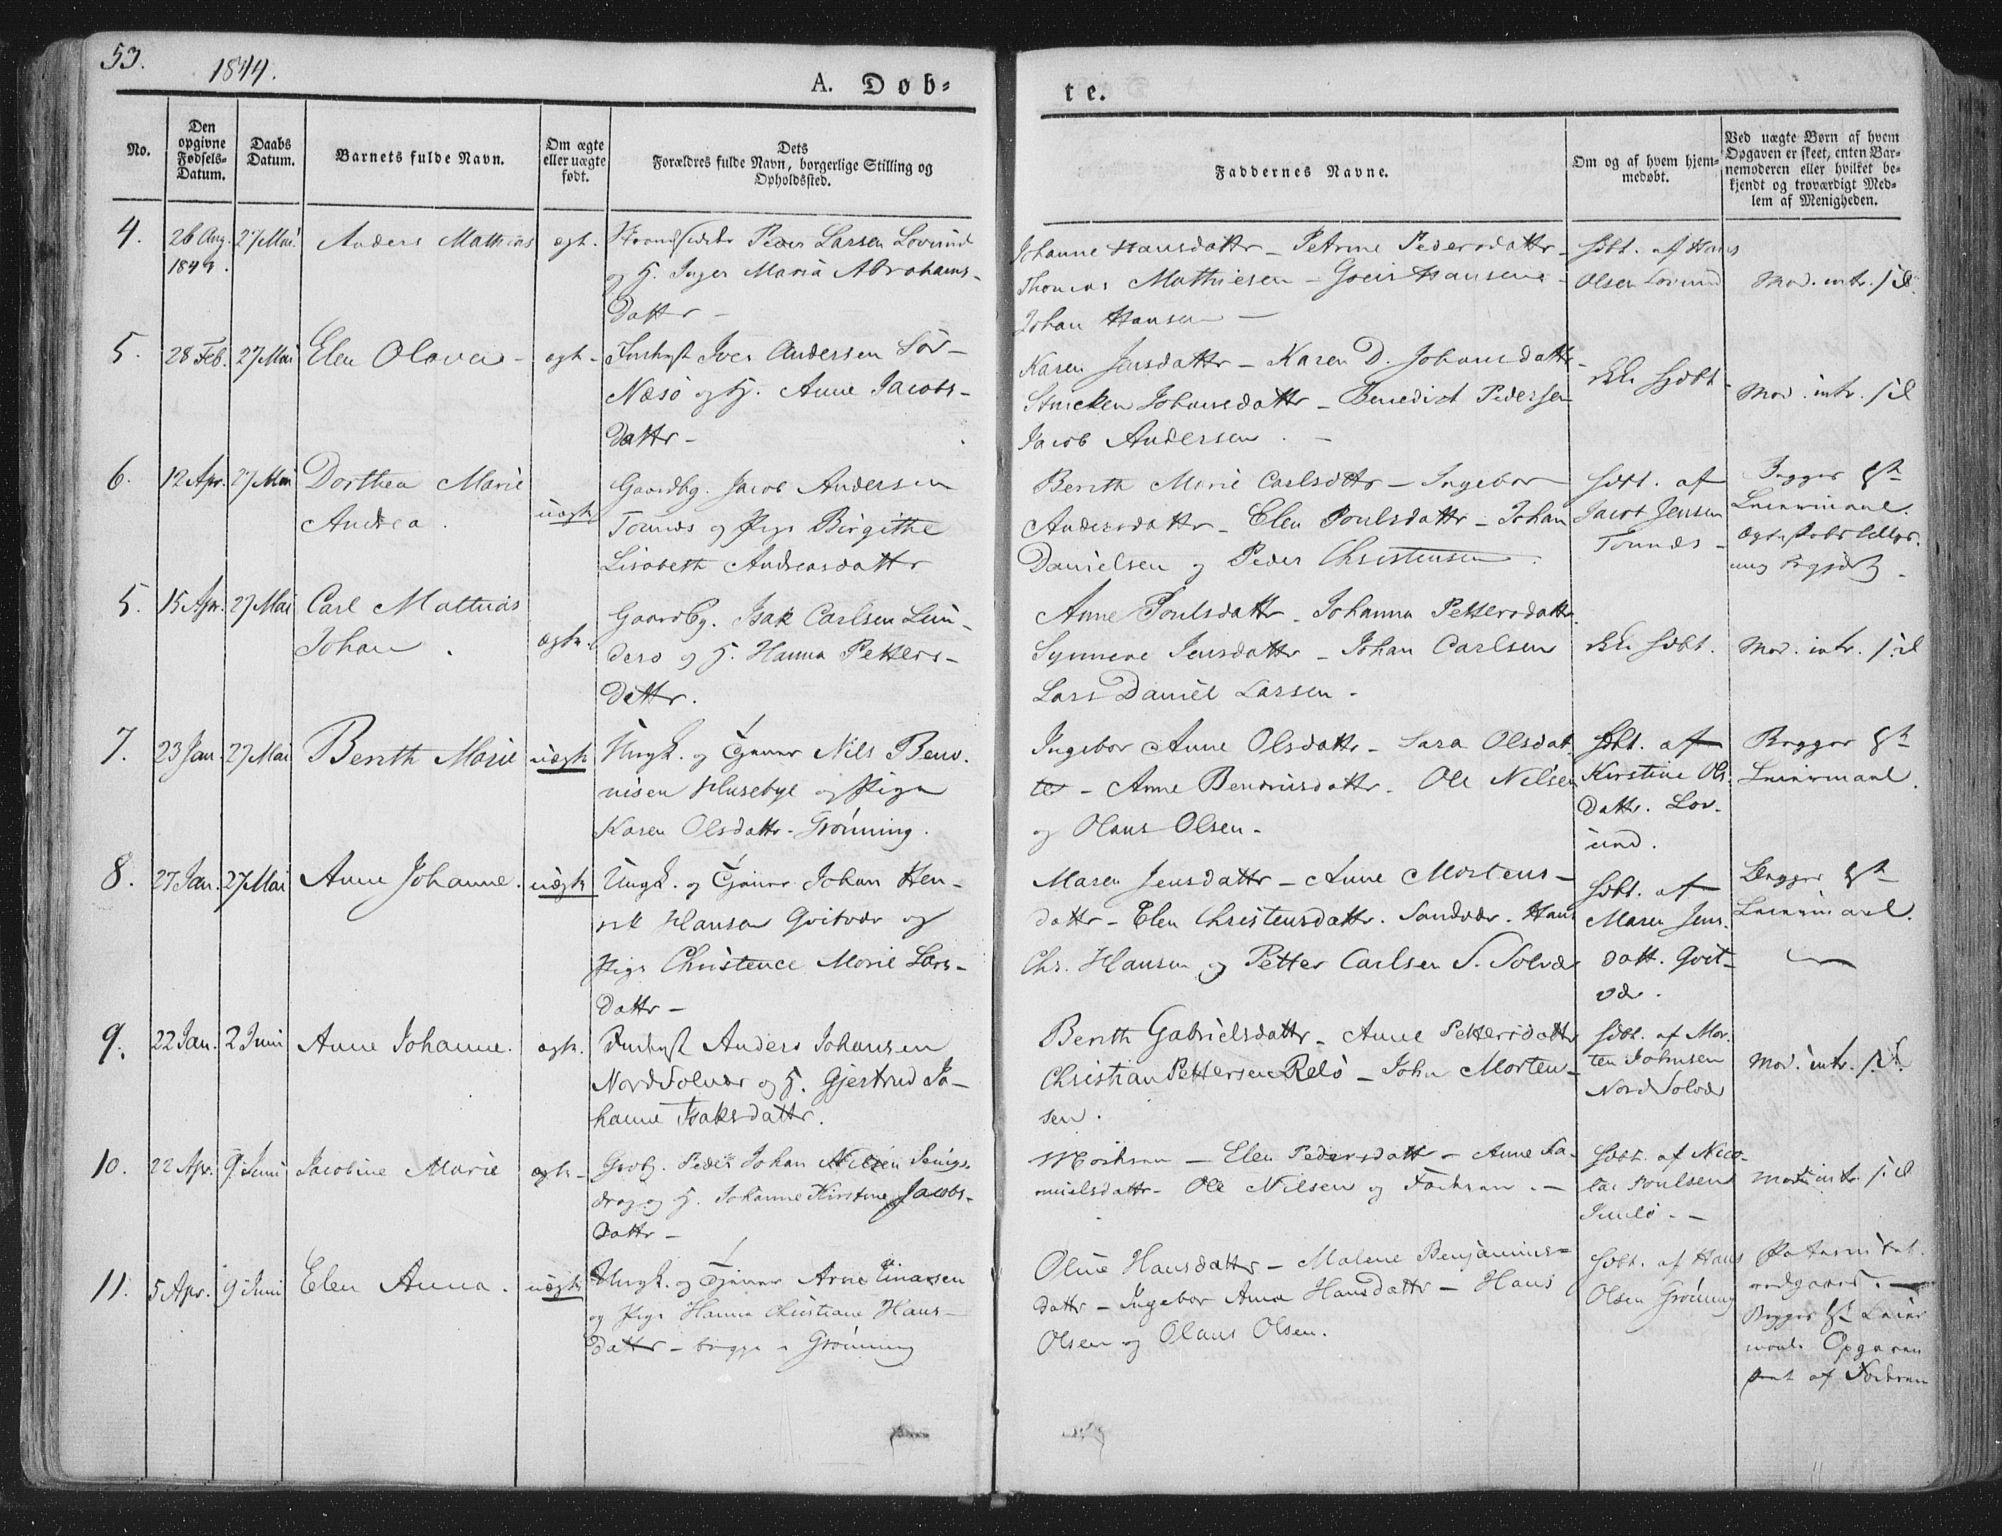 53.
1844.
A. Døb-
te.
No.
Den
opgivne
Fødsels-
Datum.
Daabs
Datum.
Barnets fulde Navn.
Om ægte
eller uægte
født.
Dets
Forældres fulde Navn, borgerlige Stilling og
Opholdssted.
Faddernes Navne.
Om og af hvem hjem-
medøbt.
Ved uægte Børn af hvem
Opgaven er skeet, enten Bar-
nemoderen eller hvilket be-
kjendt og troværdigt Med-
lem af Menigheden.
4.
26 Aug.
1843.
27 Mai
Anders Mathias
ægt.
Peder Larsen Lovund
og H. Inger Maria Abrahams-
Dattr -
Johanne Hansdattr - Petrine Pedersdattr -
Thomas Mathiesen - Hansen -
Johan Hansen -
hdbt. af Hans
Olsen Lovund
Mod. intr.
5.
28 Feb.
27 Mai
Elen Olava -
ægt.
Iver Andersen Sør-
Næsø og H. Anne Jacobs-
Dattr -
Karen Jensdattr - Karen D. Johansdattr
Johansdattr - Benedict Pedersen
Jacob Andersen. -
hdbt.
Mod. intr.
6.
12 Apr.
27 Mai
Dorthea Marie
Andrea.
uægt.
Gaardbg. Jacob Andersen
og Pige Birgithe
Lisabeth Andreasdattr
Berith Marie Carlsdttr - Ingebor
Andersdattr - Elen Poulsdattr - Johan
Danielsen og Peder Christensen.
hdbt. af
Jacob Jensen
Begges
Leiermaal.
5.
15 Apr.
27 Mai
Carl Mathias
Johan.
ægt.
Gaardbg. Isak Carlsen Lun-
derø og H. Hanna Petters-
Dattr.
Anne Poulsdattr - Johanna Pettersdattr
Jensdattr - Johan Carlsen
Lars Daniel Larsen -
hdbt.
Mod. intr.
7.
23 Jan.
27 Mai
Berith Marie
uægt.
Ungk. og Nils
Husebye og Pige
Karen Olsdattr - Grønning.
Ingebor Anne Olsdattr - Sara Olsdat-
ter - Anne - Ole Nilsen
og Olaus Olsen -
hdbt. af
Kirstine Ols-
dattr. Lov-
und.
Begges
Leiermaal.
8.
27 Jan.
27 Mai
Anne Johanne.
uægt.
Ungk. og Johan Hen-
rik Hansen Qvitvær og
Pige Christence Marie Lars-
Dattr -
Maren Jensdattr - Anne Mortens-
dattr - Elen Christensdattr. Sandvær. Hans
Chr. Hansen og Petter Carlsen S. Solvær
hdbt. af
Maren Jens-
datt. Qvit-
vær.
Begges
Leiermaal.
9.
22 Jan.
2 Juni
Anne Johanne.
ægt.
Anders Johansen
Nord Solvær og H. Gjertrud Jo-
hanne Isaksdattr.
Berith Gabrielsdattr - Anne Pettersdattr
Christian Pettersen Relø - John Morten-
sen.
hdbt. af Mor-
ten Johnsen
Nord Solvær
Mod. intr.
10.
22 Apr.
9 Juni
Jacobine Marie
ægt.
Peder Johan Nilsen
og H. Johanne Kirstine Jacobs-
Dattr -
Modren - Elen Pedersdattr - Anne Sa-
muelsdattr - Ole Nilsen og Fadren. -
hdbt. af Nico-
lai Poulsen
Mod. intr.
11.
5 Apr.
9 Juni
Elen Anna.
uægt.
Ungk. og Arne Einarsen
og Pige Hanna Christiane Hans-
Dattr - begge i Grønning
Oline Hansdattr - Malene Benjamins-
dattr - Ingebor Ana Hansdattr - Hans
Olsen og Olaus Olsen.
hdbt. af Hans
Olsen Grønning
Begges Leier
maal. Opgaven
af Fadren